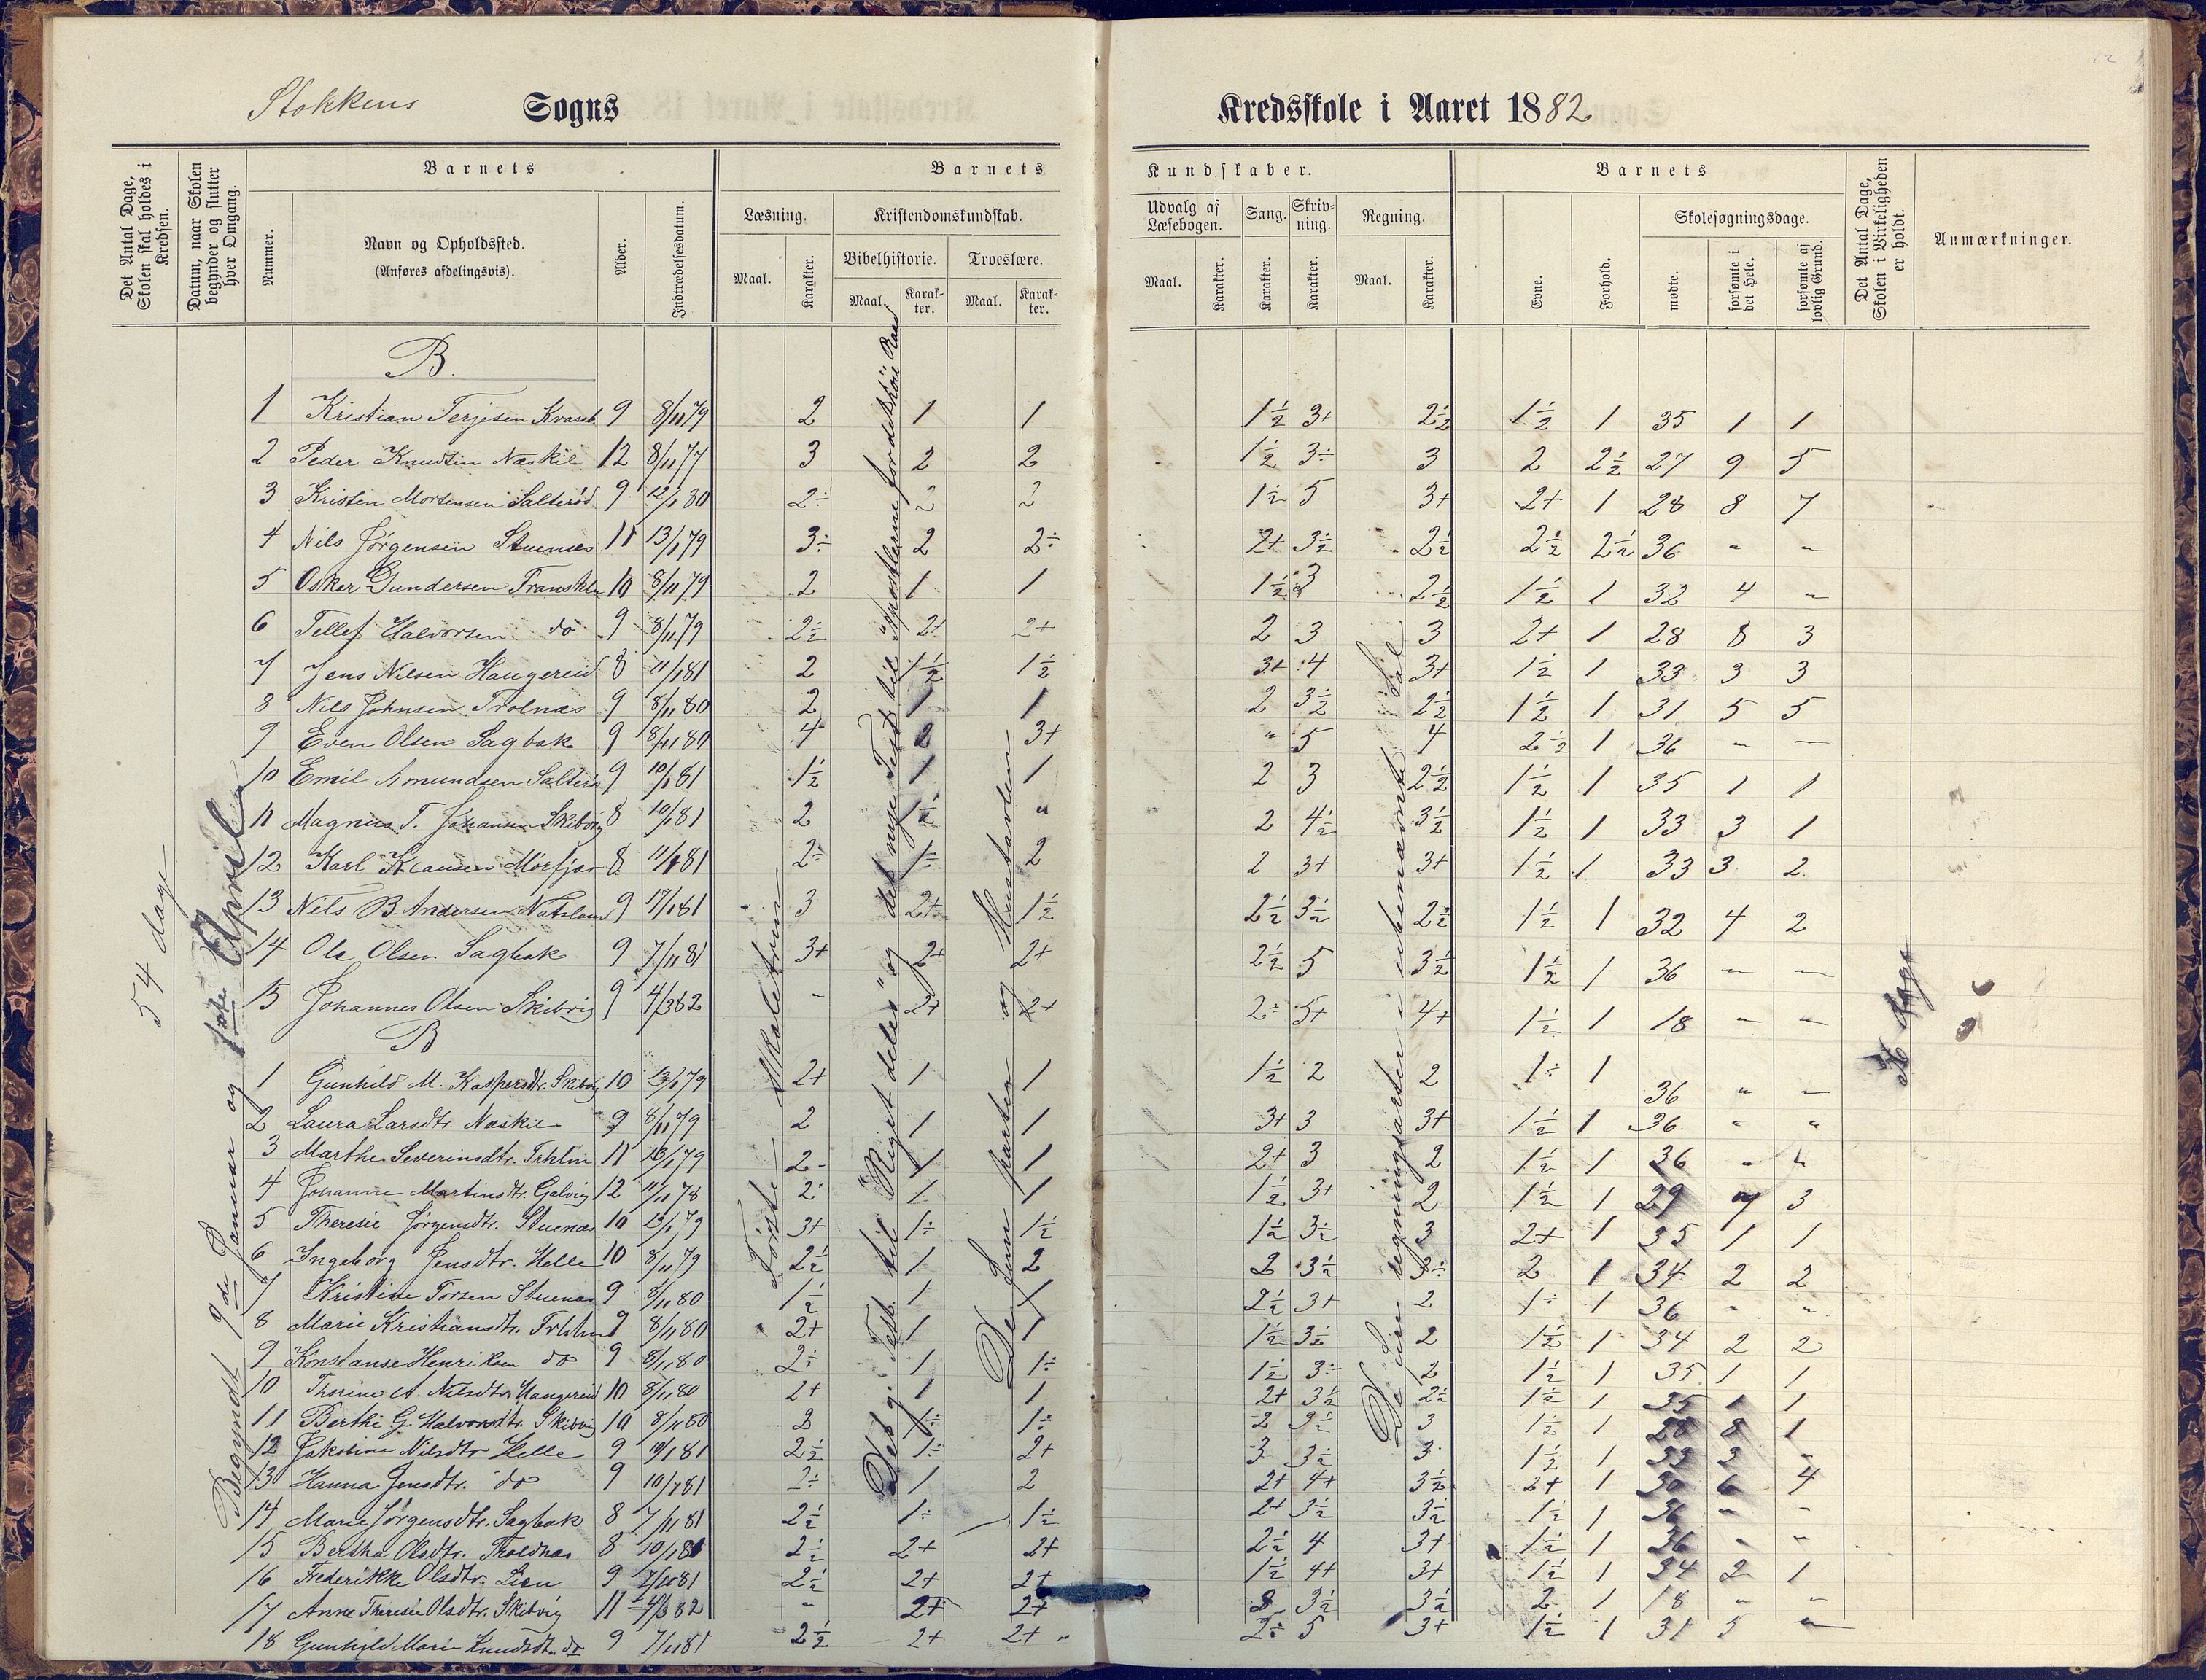 Stokkens Sogns Kredsskole i Aaret 1882
Det Antal Dage, Skolen skal holdes i Kredsen.
Datum, naar Skolen begynder og slutter hver Omgang.
Barnets
Nummer.
Navn og Opholdssted.
(Anføres afdelingsvis).
Alder.
Indtrædelsesdatum.
Barnets Kundskaber.
Læsning.
Maal. Karakter.
Kristendomskundskab.
Bibelhistorie. Troeslære.
Maal. Karakter. Maal. Karakter.
Udvalg af Læsebogen.
Maal. Karakter.
Sang. Karakter.
Skrivning. Karakter.
Regning.
Maal. Karakter.
Barnets
Evne. Forhold.
Skolesøgningsdage.
mødte. forsømte i det Hele. forsømte af lovlig Grund.
Det Antal Dage, Skolen i Virkeligheden er holdt.
Anmærkninger.
54 dage
Begyndt 9de Januar og April
Første
Det g. Test. til "Riget deles" og det nye Test. til "Apostlerne
Den parten og Hustavlen
De fire regningsarter i ubenævnte tal
dage
B.
1 Kristian Terjesen 9 8/11 79 2 1 1 1½ 3+ 2½ 1½ 1 35 1 1
2 Peder Knudsen Næskil 12 8/11 77 3 2 2 1½ 3÷ 3 2 2½ 27 9 5
3 Kristen Mortensen Salterød 9 12/1 80 2÷ 2 2 1½ 5 3+ 2+ 1 28 8 7
4 Nils Jørgensen Stuenæs 11 13/1 79 3÷ 2 2÷ 2+ 3½ 2½ 2½ 2½ 36 " "
5 Oskar Gundersen 10 8/11 79 2 1 1 1½ 3 2½ 1½ 1 32 4 "
6 Tellef Halvorsen do 9 8/11 79 2½ 2+ 2+ 2 3 3 2+ 1 28 8 3
7 Jens Nilsen Haugereid 8 11/1 81 2 1½ 1½ 3+ 4 3+ 1½ 1 33 3 3
8 Nils Johnsen Trolnæs 9 8/11 80 2 1 1 2 3½ 2½ 1½ 1 31 5 5
9 Even Olsen Sagbak 9 8/11 80 4 2 3+ " 5 4 2½ 1 36 " "
10 Emil Amundsen 9 10/1 81 1½ 1 1 2 3 2½ 1½ 1 35 1 1
11 Magnus T. Johansen Skibvig 8 10/1 81 2 1½ " 2 4½ 3½ 1½ 1 33 3 1
12 Karl Klausen 8 11/1 81 2÷ 1÷ 2 2 3+ 3+ 1½ 1 33 3 2
13 Nils B. Andersen 9 17/1 81 3 2÷ 1½ 2½ 3½ 2½ 1½ 1 32 4 2
14 Ole Olsen Sagbak 9 7/11 81 3+ 2+ 2+ 2½ 5 3½ 1½ 1 36 " "
15 Johannes Olsen Skibvig 9 4/3 82 " 2+ 2+ 2÷ 5+ 4+ 1½ 1 18 " "
B
1 Gunhild M. Kaspersdtr. Skibvig 10 13/1 79 2+ 1 1 1½ 2 2 1÷ 1 36 " "
2 Laura Larsdtr. Næskil 9 8/11 79 2 1 1 3+ 3 3+ 1½ 1 36 " "
3 Marthe Severinsdtr. 11 13/1 79 2÷ 1 1 2+ 3 2 1½ 1 36 " "
4 Johanne Martinsdtr. Galvig 12 11/11 78 2÷ 1 1 1½ 3+ 2 1½ 1 29 7 3
5 Theresie Jørgensdtr. Stuenæs 10 13/1 79 3+ 1÷ 1½ 1½ 3½ 3 2+ 1 35 1 1
6 Ingeborg Jensdtr. Helle 10 8/11 79 2½ 1 2 2 3½ 3÷ 2 1 34 2 2
7 Kristine Torsen Stuenæs 9 8/11 80 1½ 1 1 2½ 3+ 2 1÷ 1 36 " "
8 Marie Kristiansdtr. 9 8/11 80 2+ 1 1 1½ 3½ 2 1½ 1 34 2 2
9 Konstanse Henriksen do 9 8/11 80 2÷ 1 1÷ 1½ 3÷ 2 1½ 1 35 1 1
10 Thorine A. Nilsdtr. Haugereid 10 8/11 80 2+ 1 1 2+ 3½ 2½ 1½ 1 35 1 1
11 Berthe G. Halvorsdtr. Skibvig 10 8/11 80 2 1÷ 1÷ 2 3½ 3 1½ 1 28 8 1
12 Jakobine Nilsdtr Helle 9 10/1 81 2½ 1÷ 2+ 3 3½ 3 1½ 1 33 3 "
13 Hanna Jensdtr. do 9 10/1 81 2÷ 1 2 2+ 4+ 3½ 2+ 1 30 6 4
14 Marie Jørgensdtr. Sagbak 8 7/11 81 2½ 1÷ 1½ 2+ 3½ 3½ 1½ 1 36 " "
15 Bertha Olsdtr. Troldnæs 8 10/1 81 2½ 2+ 2+ 2½ 4 3+ 1½ 1 36 " "
16 Frederikke Olsdtr. Lien 9 7/11 81 2½ 2+ 2+ 1½ 4+ 3+ 1½ 1 34 2 1
17 Anne Theresie Olsdtr. Skibvig 11 4/3 82 " 2+ 2+ 2 3½ 3½ 2 1 18 " "
18 Gunhild Marie Knudsdtr. do 9 7/11 81 2½ 2+ 2+ 2÷ 5 3+ 1½ 1 31 5 "